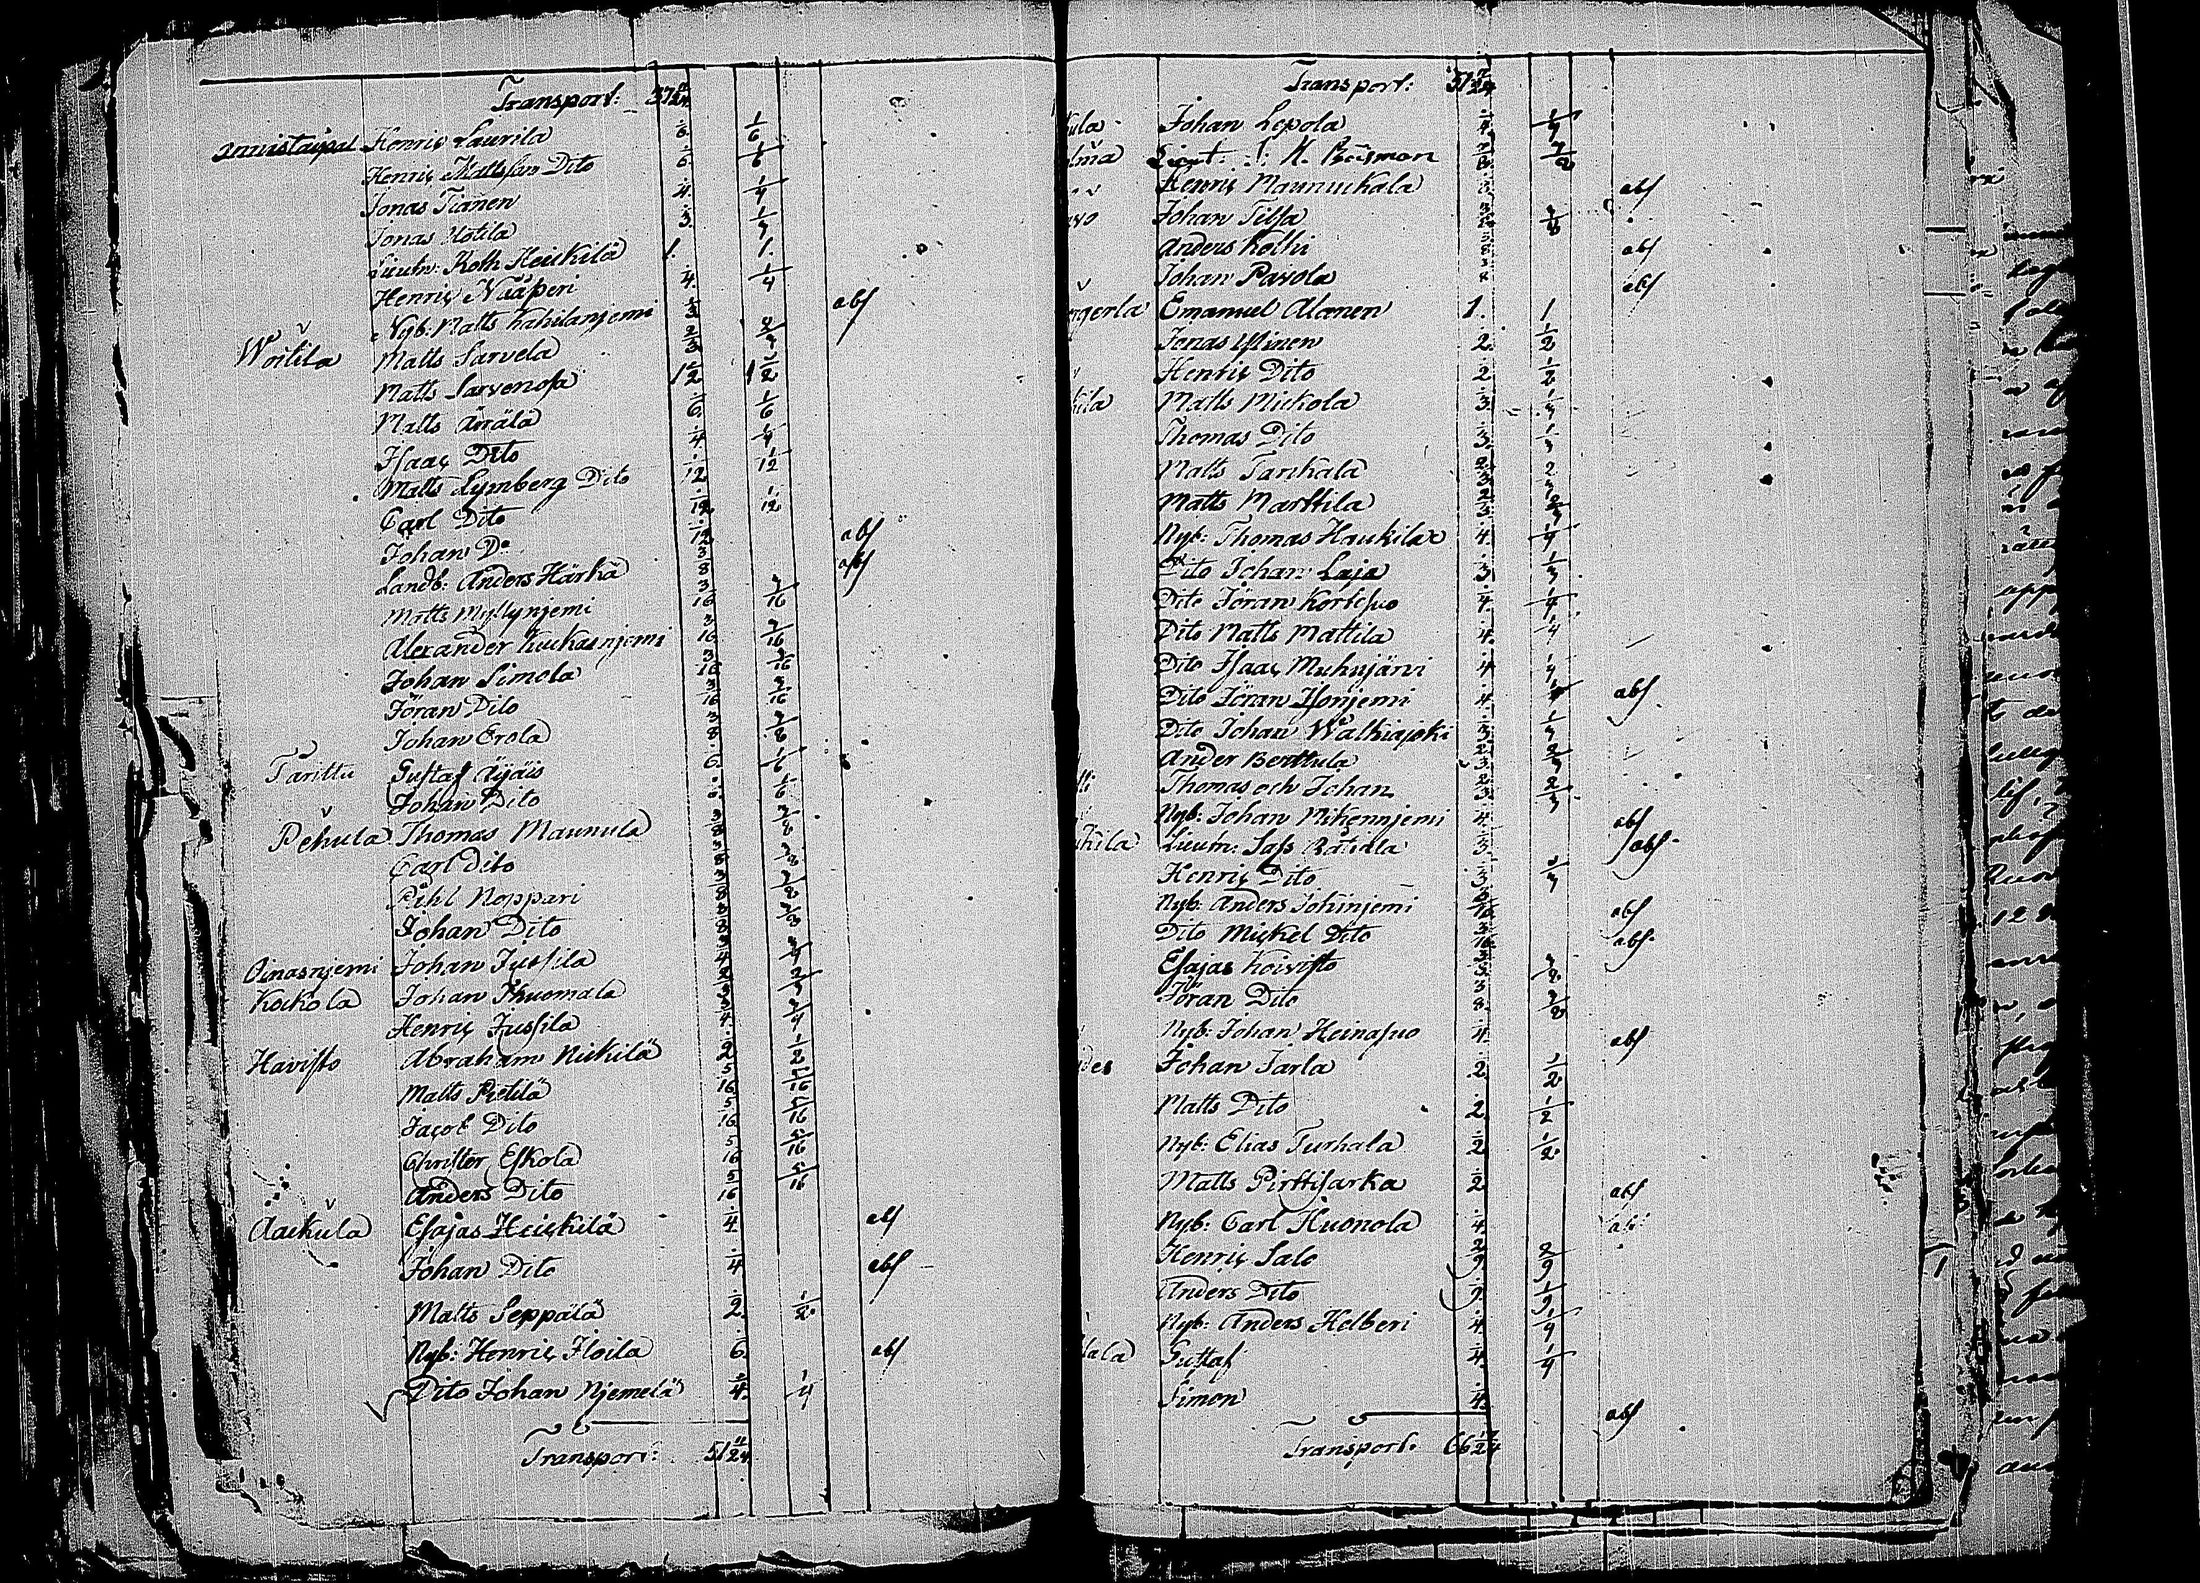 Transport: 37 11/24
Henric Laurila 1/6 1/6
Henric Mattsson Dito 1/6 1/6
Jonas Tianen 1/4 1/4
Jonas Hotila 1/3 1/3
Lieutn: Roth Heickilä 1. 1.
Henric Nääperi 1/4 1/4
Nyb. Matts Kahilanjemi 1/3 abs
Woitila Matts Sarvela 2/3 2/3
Matts Sarvenoja 1 1/2 1 1/2
Matts Ärrälä 1/6 1/6
Isaac Dito 1/4 1/4
Matts Lymberg Dito 1/12 1/12
Carl Dito 1/12 1/12
Johan Do 1/12 abs
Landb: Anders Härkä 3/8 abs
Matts Myllynjemi 3/16 3/16
Alexander Kuckasnjemi 3/16 3/16
Johan Simola 3/16 3/16
Jöran Dito 3/16 3/16
Johan Erola 3/8 3/8
Tarittu Gustaf Äijäis 1/6 1/6
Johan Dito 1/6 1/6
Pehula Thomas Maunula 3/8 3/8
Carl Dito 3/8 3/8
Pihl Noppari 3/8 3/8
Johan Dito 3/8 3/8
Oinasnjemi Johan Jussila 3/4 3/4
Kockola Johan Thuomala 2/3 2/3
Henric Jussila 3/4 3/4
Havisto Abraham Nickilä 1/2 1/2
Matts Pietilä 5/16 5/16
Jacob Dito 5/16 5/16
Christer Eskola 5/16 5/16
Anders Dito 5/16 5/16
Aackula Esajas Heickilä 1/4 abs
Johan Dito 1/4 abs
Matts Seppälä 1/2 1/2
Nyb: Henric Iloila 1/6 abs
Dito Johan Njemelä 1/4 1/4
Transport: 51 11/24
Transport: 51
Johan Lepola 1/4 1/4
Henric Maunuckala abs
Johan Tilsa 3/8
Anders Kolhi 3/8 abs
Johan Pavola 3/8 abs
Emanuel Alanen 1. 1
Jonas Ylinen 1/2 1/2
Henric Dito 1/2 1/2
Matts Mickola 1/3 1/3
Thomas Dito 1/3 1/3
Matts Tarckala 2/3 2/3
Matts Marttila 2/3 2/3
Nyb: Thomas Hauckila 1/4 1/4
Dito Johan Laja 1/3 1/3
Dito Jöran Kortesuo 1/4 1/4
Dito Matts Mattila 1/4 1/4
Dito Isaac Muhujärvi 1/4 1/4
Dito Jöran Isonjemi 1/4 abs.
Dito Johan Walkiajoki 1/3 1/3
Ander Berttula 2/3 2/3
Thomas och Johan 2/3 2/3
Nyb: Johan Mikennjemi 1/4 abs
Lieutn: Sass Ratiala 1/3 abs.
Henric Dito 1/3 1/3
Nyb: Anders Johinjemi 3/16 abs
Dito Mickel Dito 3/16 abs.
Esajas Koivisto 3/8 3/8
Jöran Dito 3/8 3/8
Nyb: Johan Heinasuo 1/4 abs
Johan Jarla 1/2 1/2
Matts Dito 1/2 1/2
Nyb: Elias Turhala 1/2 1/2
Matts Pirttisarka 1/2 abs
Nyb: Carl Kuonola 1/4
Henric Salo 2/9 2/9
Anders Dito 1/9 1/9
Nyb: Anders Helberi 1/4
Gustaf 1/4 1/4
Simon 1/4 abs
Transport: 66 17/24